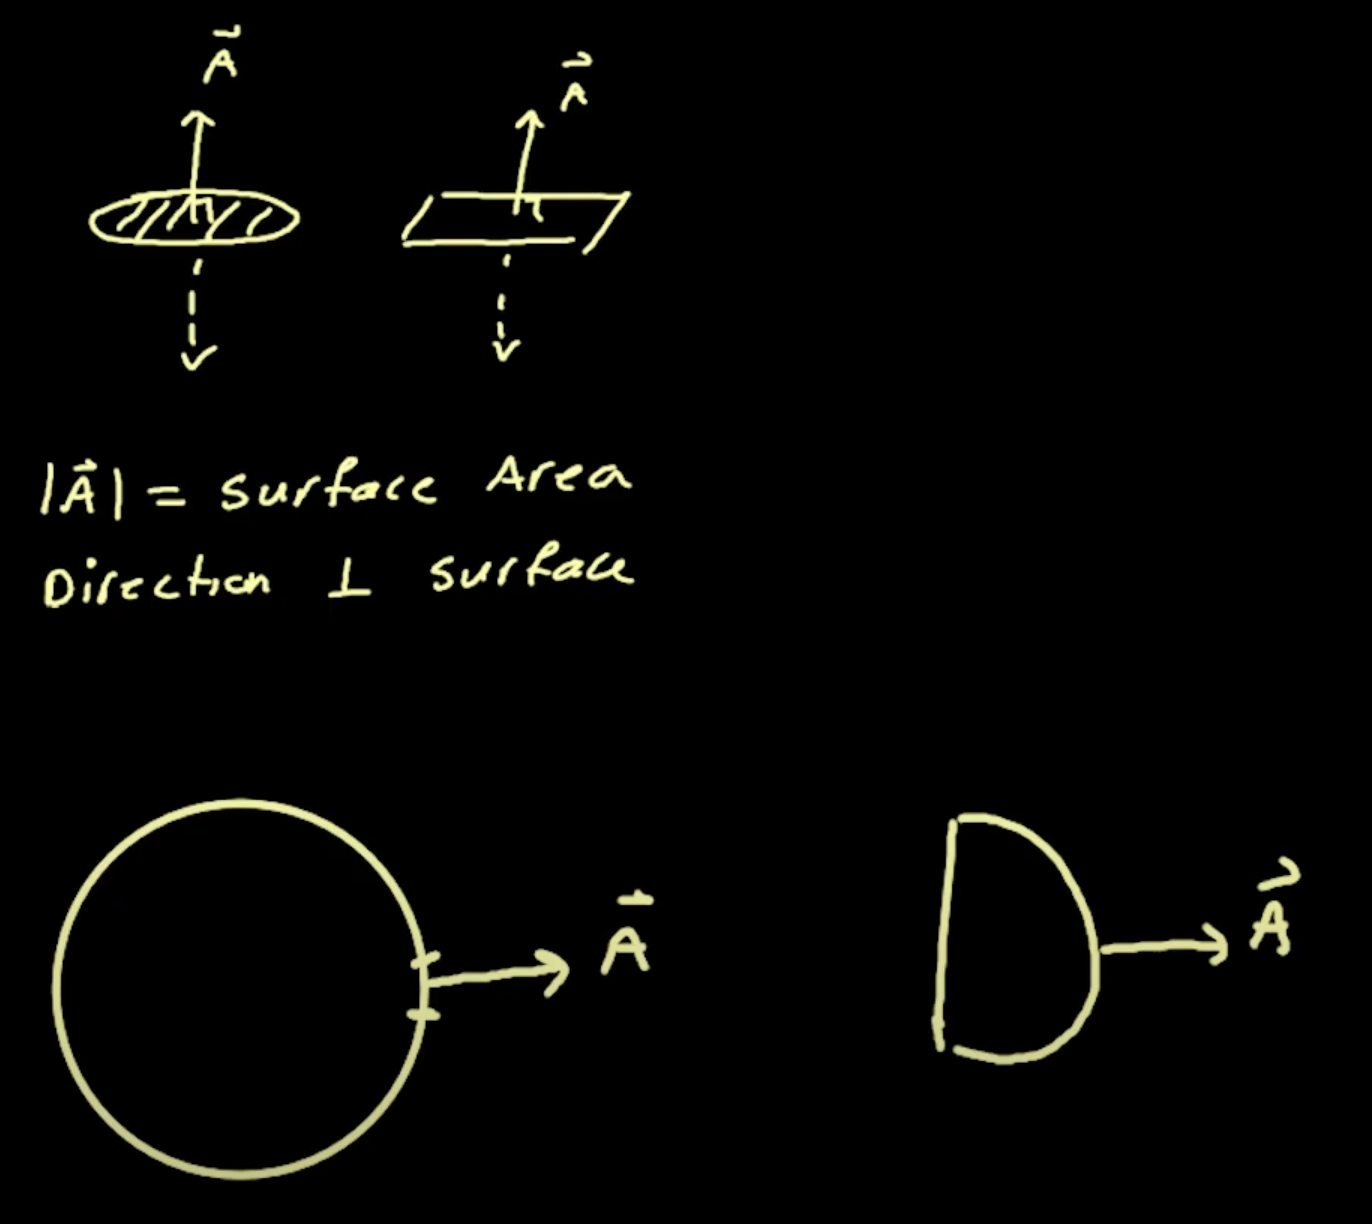 A⃗
A⃗
|A⃗| = Surface Area
Direction ⊥ surface
A⃗
A⃗